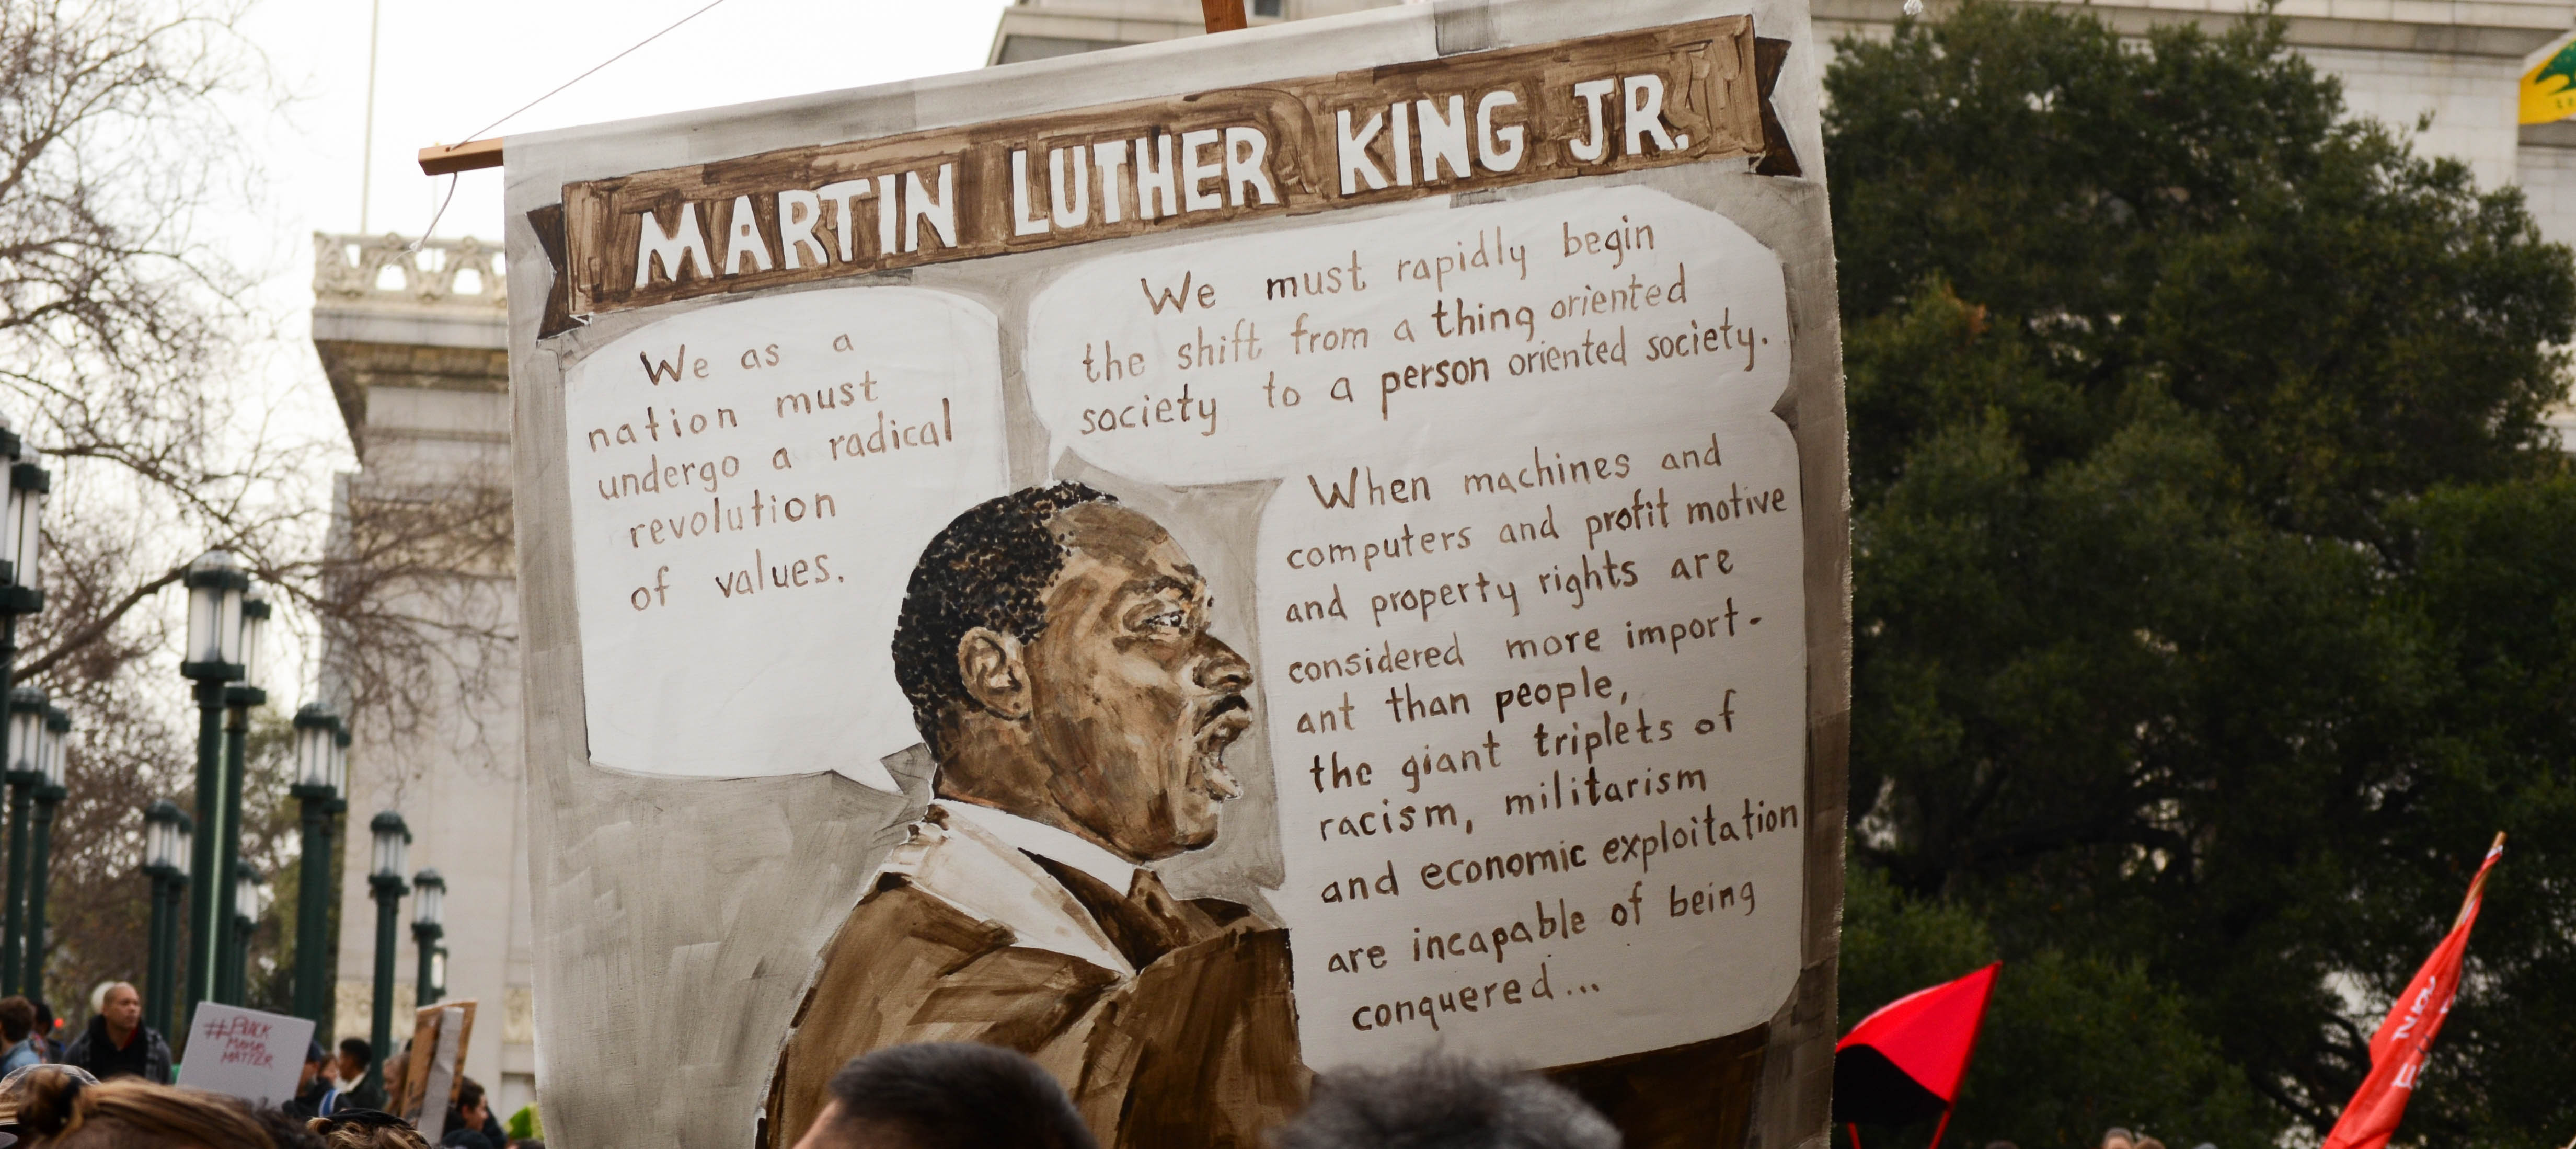 MARTIN LUTHER KING JR.
We as a
nation must
undergo a radical
revolution
of values.
We must rapidly begin
the shift from a thing oriented
society to a person oriented society.
When machines and
computers and profit motive
and property rights are
considered more import-
ant than people,
the giant triplets of
racism, militarism
and economic exploitation
are incapable of being
conquered...
MATTER